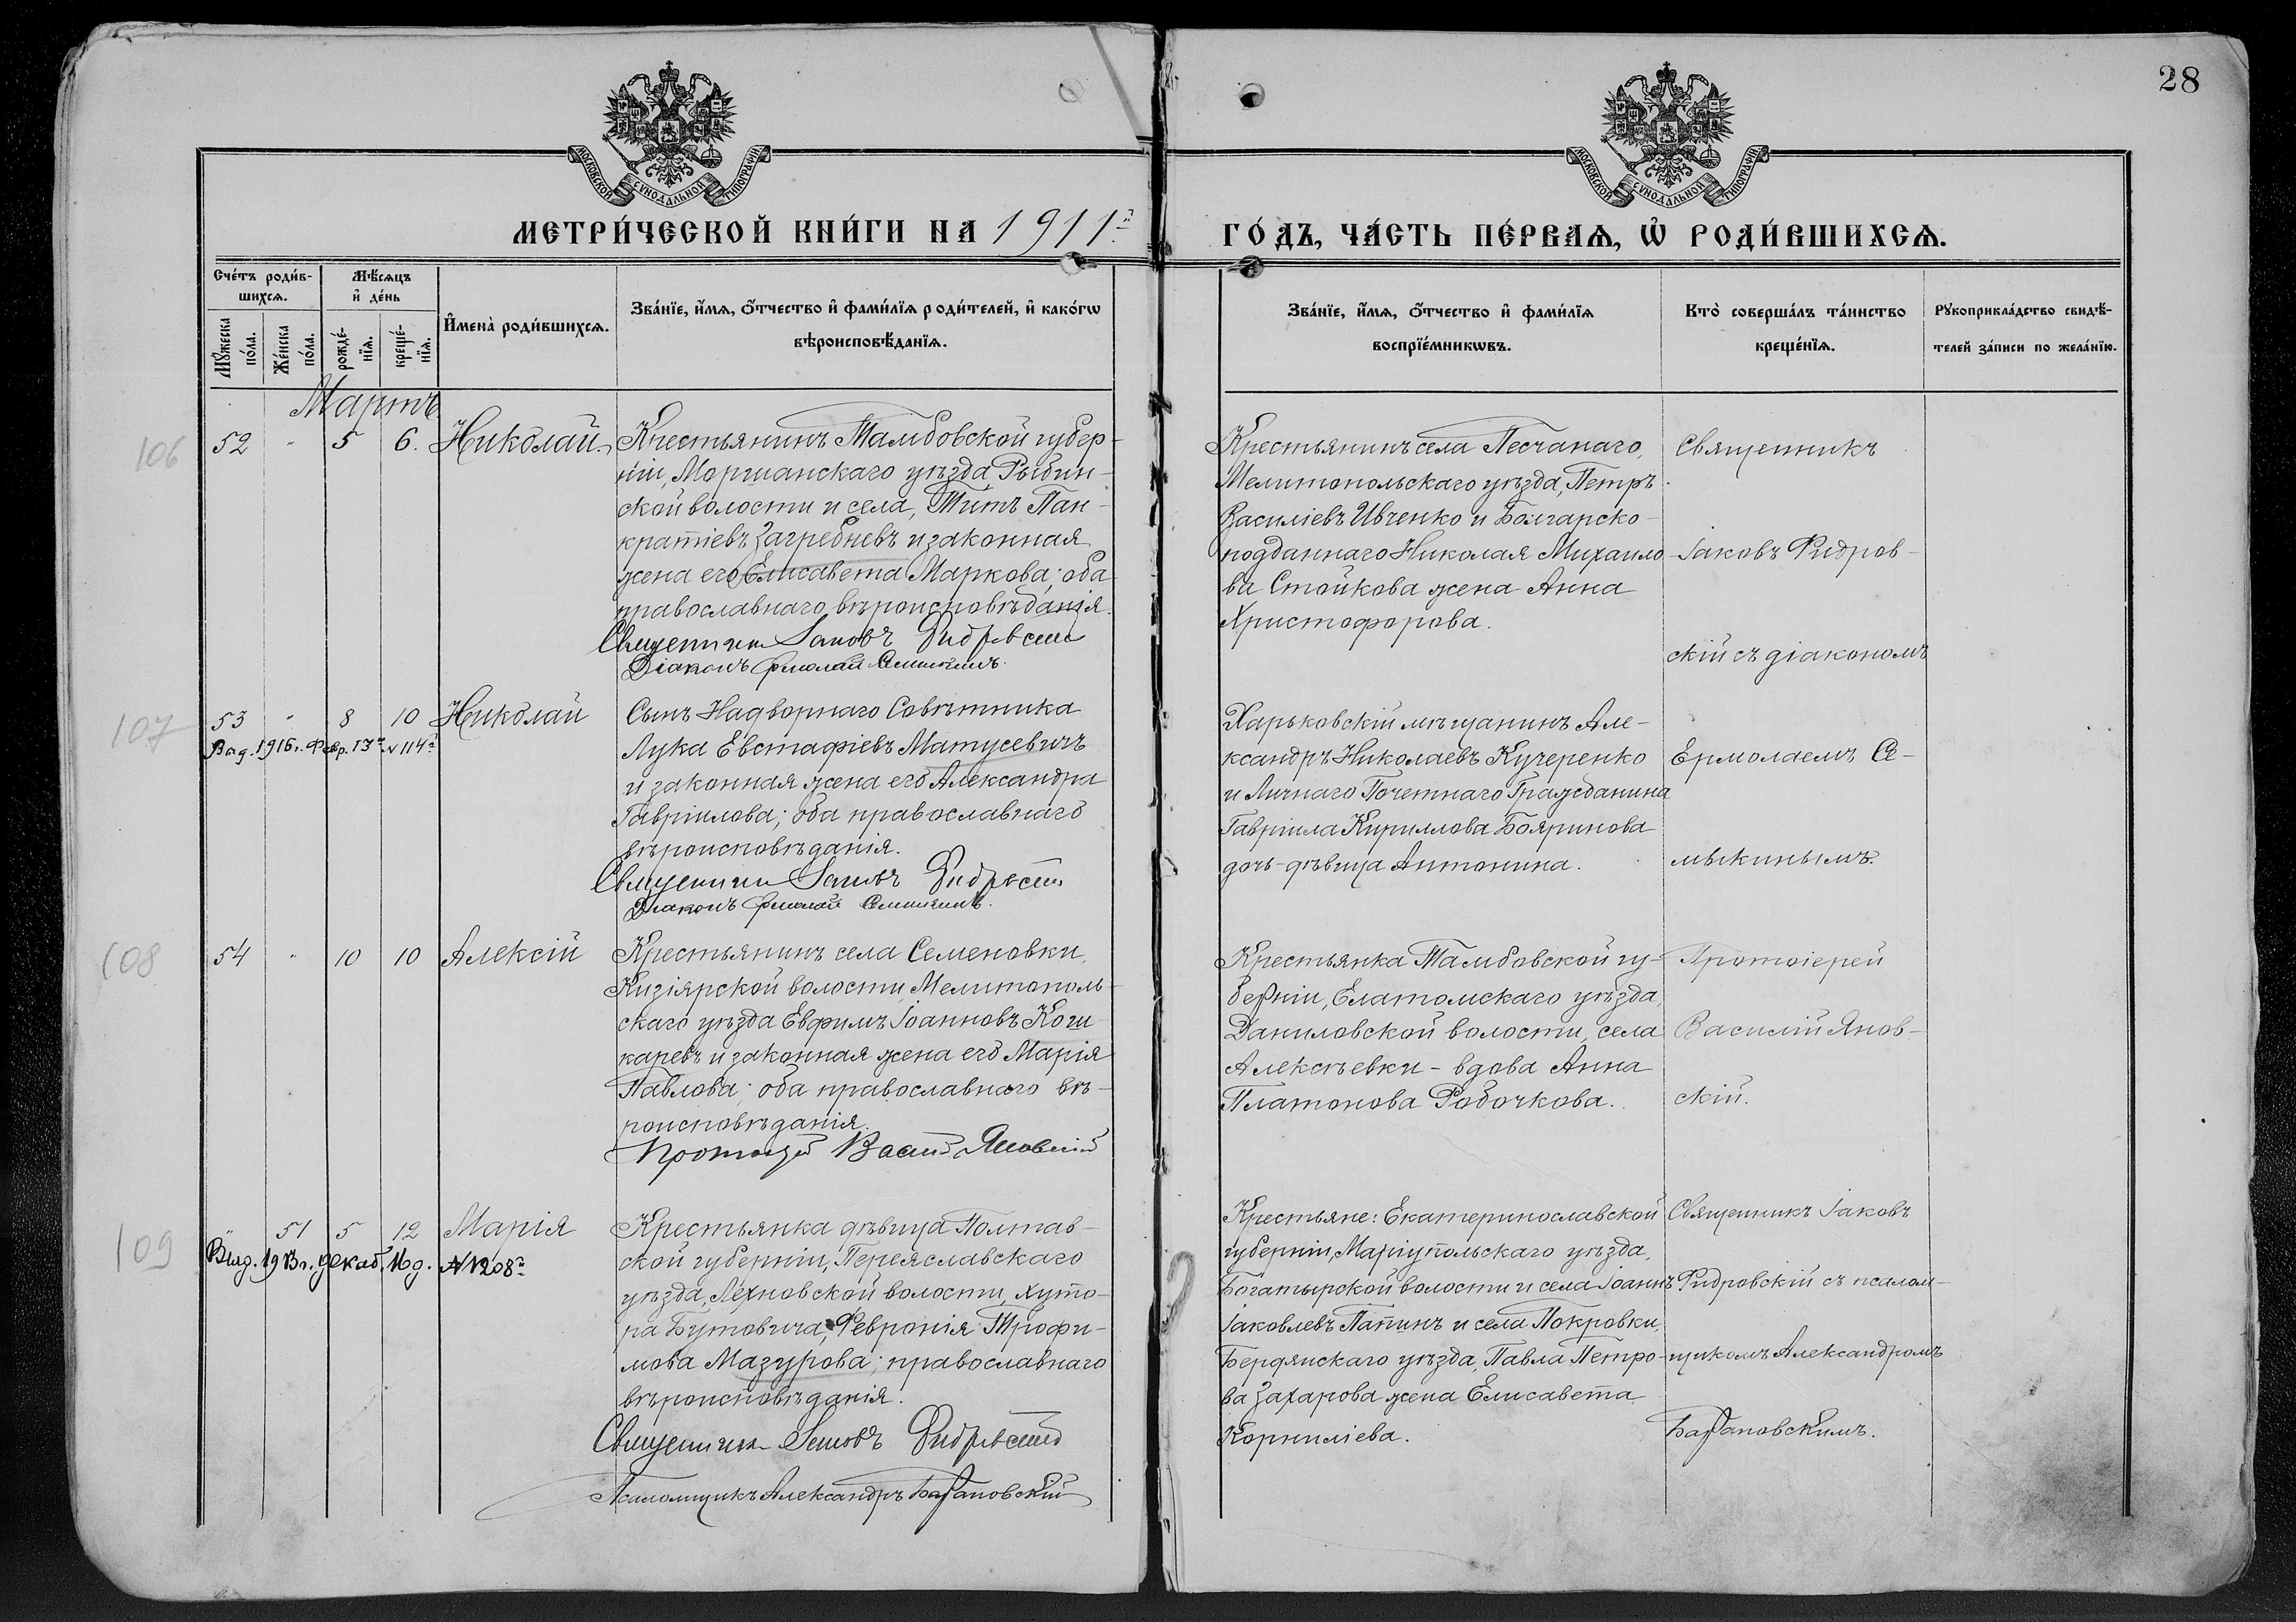 28
МОСКОВСКОЙ СѴНОДАЛЬНОЙ ТИПОГРАФІИ
МОСКОВСКОЙ СѴНОДАЛЬНОЙ ТИПОГРАФІИ
МЕТРИ́ЧЕСКОЙ КНИ́ГИ НА 1911 г.
ГО́ДЪ, ЧА́СТЬ ПЕ́РВАѦ, Ѽ РОДИ́ВШИХСѦ.
Сче́тъ роди́в-
шихсѧ.
Мѣ́сѧцъ
и҆ де́нь
Мꙋ́жеска
по́ла.
Же́нска
по́ла.
рожде́-
нїѧ.
креще́-
нїѧ.
И҆мена̀ роди́вшихсѧ.
Зва́нїе, и҆́мѧ, ѻ҆́тчество и҆ фами́лїѧ роди́телей, и҆ како́гѡ
вѣроисповѣ́данїѧ.
Зва́нїе, и҆́мѧ, ѻ҆́тчество и҆ фами́лїѧ
воспрїе́мникѡвъ.
Кто̀ соверша́лъ та́инство
креще́нїѧ.
Рꙋкоприкла́дство свидѣ́-
телей за́писи по жела́нїю.
Мартъ
106 52 " 5 6. Николай.
Крестьянинъ Тамбовской губер-
ніи, Моршанскаго уѣзда Рыбин-
ской волости и села, Титъ Пан-
кратіевъ Загребневъ и законная
жена его Елисавета Маркова; оба
православнаго вѣроисповѣданія.
Священникъ Іаковъ Фидровскій
Діаконъ Ермолай Семыкинъ.
Крестьянинъ села Песчанаго,
Мелитопольскаго уѣзда, Петръ
Василіевъ Ивченко и Болгарско-
подданнаго Николая Михаило-
ва Стойкова жена Анна
Христофорова.
Священникъ
Іаковъ Фидров-
скій съ діакономъ
107 53 " 8 10 Николай
Выд. 1916 г. Февр. 13 г. № 114
Сынъ Надворнаго Совѣтника
Лука Евстафіевъ Матусевичъ
и законная жена его Александра
Гавріилова; оба православнаго
вѣроисповѣданія.
Священникъ Іаковъ Фидровскій
Діаконъ Ермолай Семыкинъ.
Харьковскій мѣщанинъ Але-
ксандръ Николаевъ Кучеренко
и Личнаго Почетнаго Гражданина
Гавріила Кириллова Бояринова
дочь-дѣвица Антонина.
Ермолаемъ Се-
мыкинымъ.
108 54 " 10 10 Алексій
Крестьянинъ села Семеновки,
Кизіярской волости, Мелитополь-
скаго уѣзда Евфимъ Іоанновъ Коши-
каревъ и законная жена его Марія
Павлова; оба православнаго вѣ-
роисповѣданія.
Протоіерей Василій Яновскій
Крестьянка Тамбовской гу-
берніи, Елатомскаго уѣзда,
Даниловской волости, села
Алексѣевки - вдова Анна
Платонова Рабочкова.
Протоіерей
Василій Янов-
скій.
109 51 5 12 Марія
Выд. 1913 г. декаб. 16 д. № 1208
Крестьянка дѣвица Полтав-
ской губерніи, Переяславскаго
уѣзда, Лехновской волости, хуто-
ра Бутовича, Февронія Трофи-
мова Мазурова; православнаго
вѣроисповѣданія.
Священникъ Іаковъ Фидровскій
Псаломщикъ Александръ Барановскій
Крестьяне: Екатеринославской
губерніи, Маріупольскаго уѣзда,
Богатырской волости и села Іоаннъ
Іаковлевъ Папинъ и села Покровки,
Бердянскаго уѣзда, Павла Петро-
ва Захарова жена Елисавета
Корниліева.
Священникъ Іаковъ
Фидровскій съ псалом-
щикомъ Александромъ
Барановскимъ.